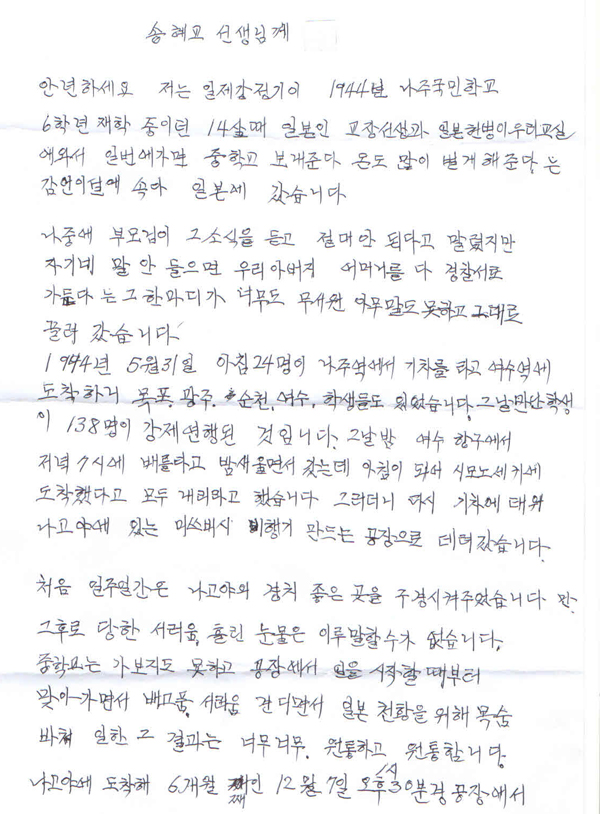 송혜교 선생님께
안녕하세요 저는 일제강점기인 1944년 나주국민학교
6학년 재학 중이던 14살때 일본인 교장선생과 일본헌병이우리교실
에와서 일번에가면 중학교 보내준다 돈도 많이 벌게 해준다 는
감언이설에 속아 일본에 갔습니다
나중에 부모님이 그소식을 듣고 절대안 된다고 말렸지만
자기네 말 안 들으면 우리아버지 어머니를 다 경찰서로
가둔다 는 그한마디가 너무도 무서워 아무말도못하고 그대로
끌려 갔습니다
1944년 5월31일 아침24명이 나주역에서 기차를 타고 여수역에
도착하니 목포, 광주, 순천, 여수, 학생들도 있었습니다. 그날만난학생
이 138명이 강제연행된 것입니다. 그날밤 여수 항구에서
저녁 7시에 배를타고 밤새울면서 갔는데 아침이 되어 시모노세키에
도착했다고 모두 내리라고 했습니다 그러더니 다시 기차에 태워
나고야에 있는 미쓰비시 비행기 만드는 공장으로 데려갔습니다.
처음 일주일간은 나고야의 경치 좋은 곳을 구경시켜주었습니다 만.
그후로 당한 서러움, 흘린 눈물은 이루말할수가 없습니다.
중학교는 가보지도 못하고 공장에서 일을 시작할 때부터
맞아가면서 배고픔, 서러움 견디면서 일본 천황을 위해 목숨
바쳐 일한 그 결과는 너무너무. 원통하고 원통합니다.
나고야에 도착해 6개월 째인 12월 7일 오후1시30분경 공장에서